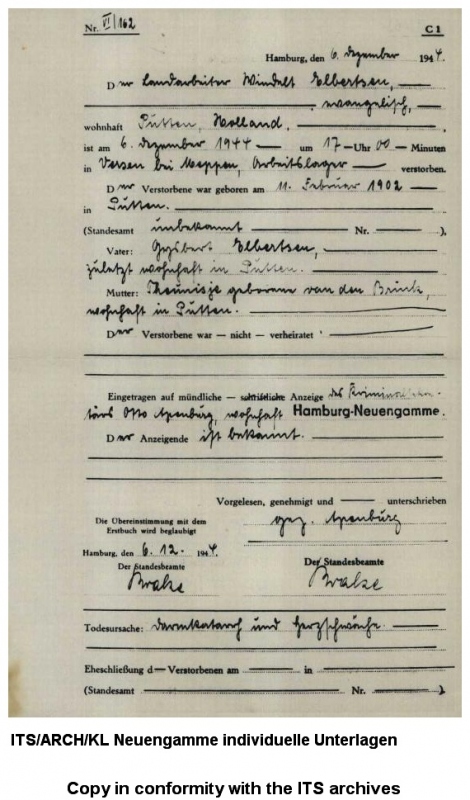 Nr. VI/162 C 1
Hamburg, den 6. Dezember 1944
Der Landarbeiter Windelt Elbertsen,
evangelisch,
wohnhaft Putten, Holland,
ist am 6. Dezember 1944 um 17 Uhr 00 Minuten
in Versen bei Meppen, Arbeitslager verstorben.
Der Verstorbene war geboren am 11. Februar 1902
in Putten.
(Standesamt unbekannt Nr. ).
Vater: Gysbert Elbertsen,
zuletzt wohnhaft in Putten.
Mutter: Theunisje geborene van den Brink,
wohnhaft in Putten.
Der Verstorbene war — nicht — verheiratet
Eingetragen auf mündliche — schriftliche Anzeige des Kriminalsekre-
tärs Otto Apenburg, wohnhaft Hamburg-Neuengamme.
Der Anzeigende ist bekannt.
Vorgelesen, genehmigt und unterschrieben
gez. Apenburg
Die Übereinstimmung mit dem
Erstbuch wird beglaubigt
Hamburg, den 6. 12. 1944.
Der Standesbeamte
Brake
Der Standesbeamte
Brake
Todesursache: Darmkatarrh und Herzschwäche.
Eheschließung d Verstorbenen am in
(Standesamt Nr. ).
ITS/ARCH/KL Neuengamme individuelle Unterlagen
Copy in conformity with the ITS archives